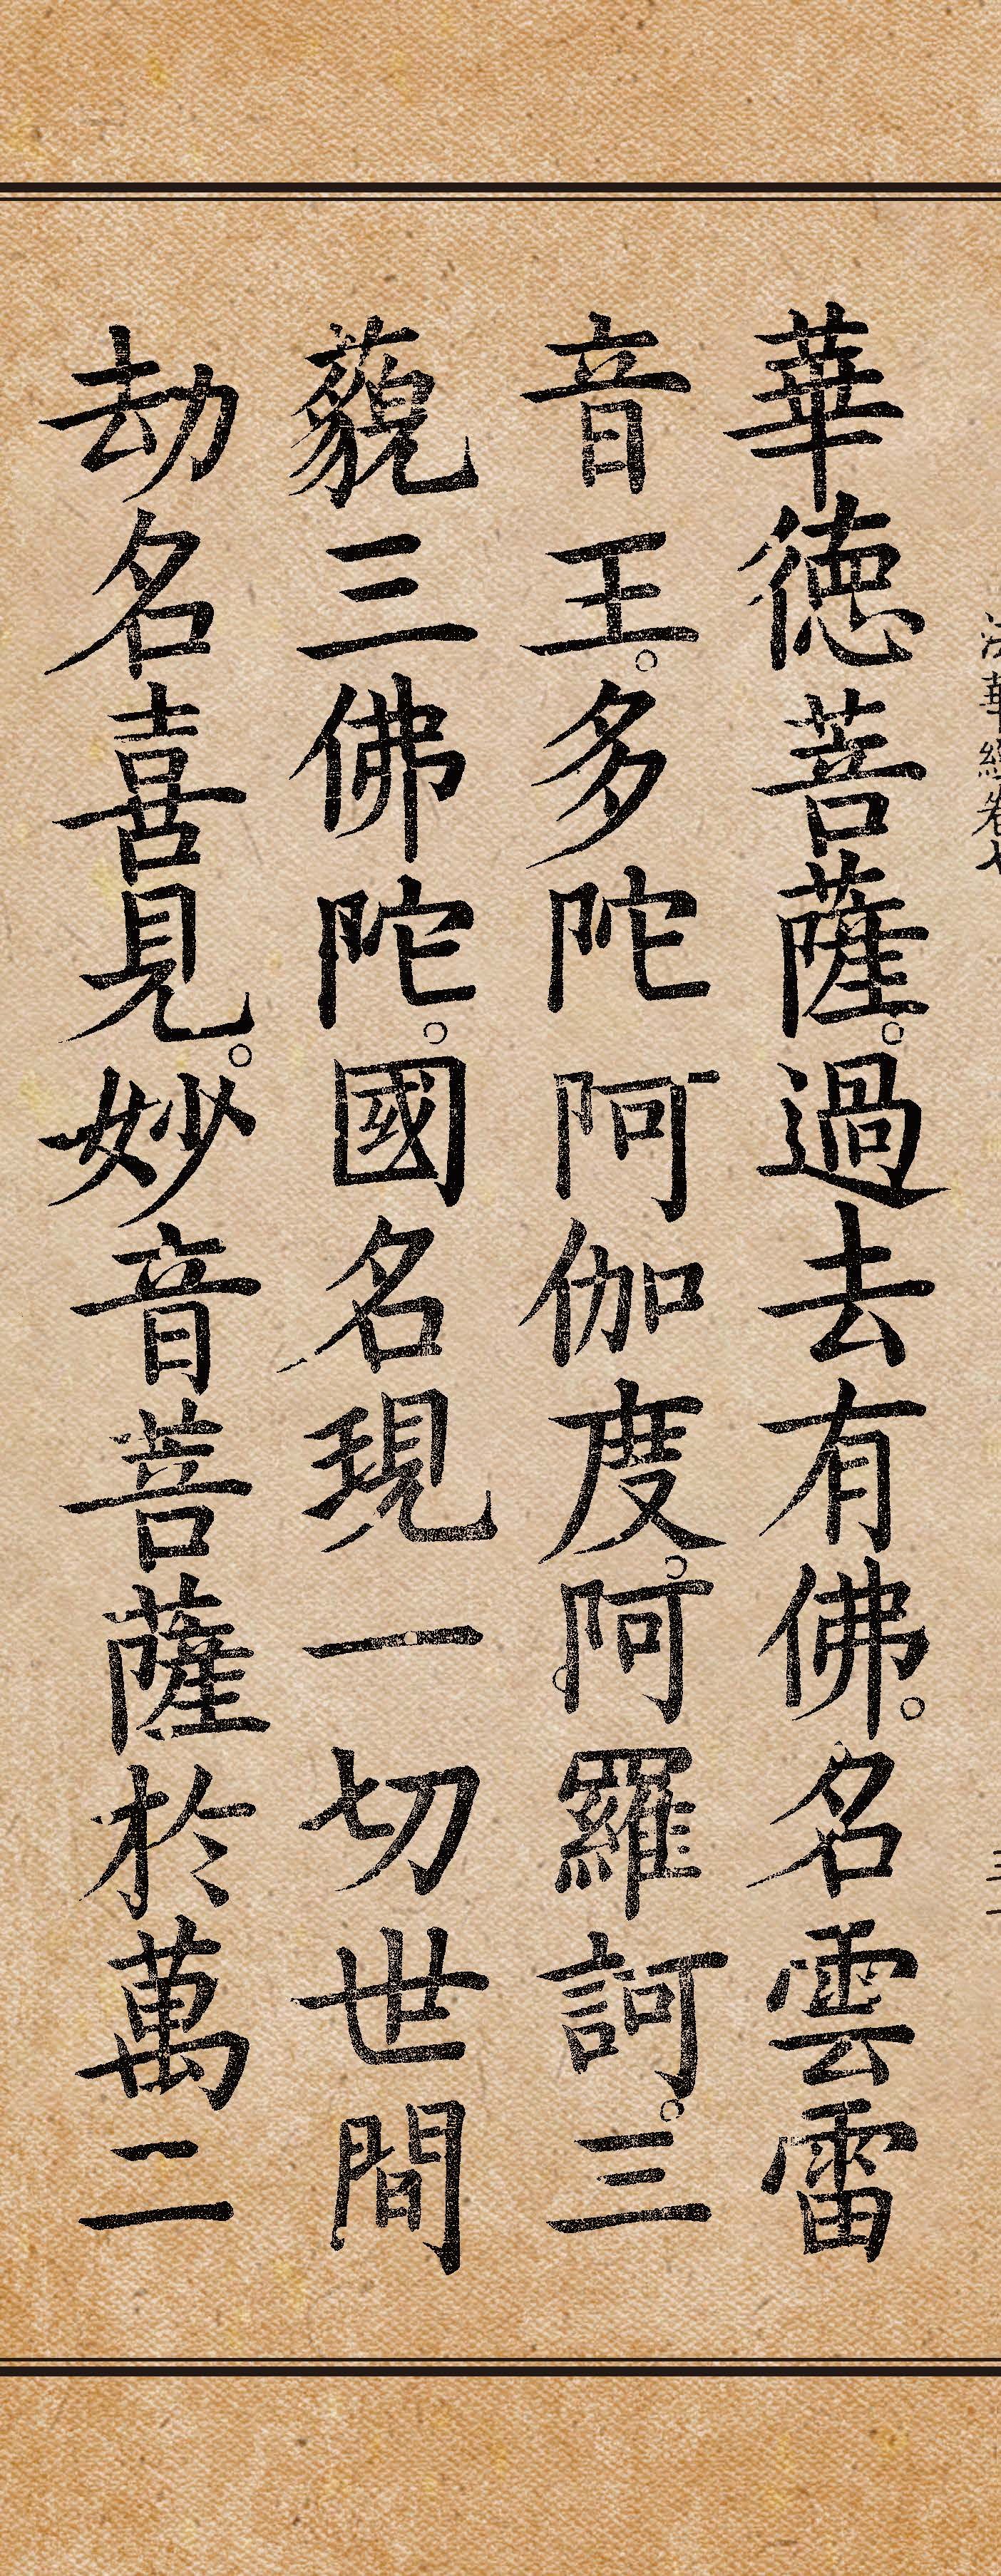 華德菩薩。過去有佛。名雲雷
音王。多陀阿伽度。阿羅訶。三
藐三佛陀。國名現一切世間
劫名喜見。妙音菩薩於萬二